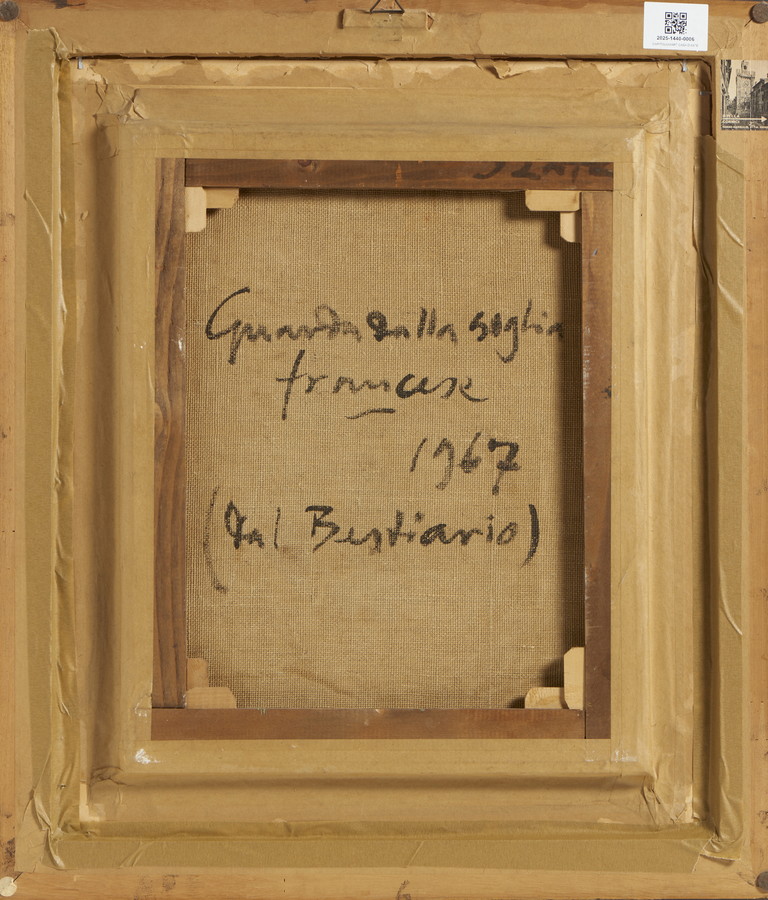 2025-1440-0006
Guarda dalla soglia
francese
1967
(dal Bestiario)
6